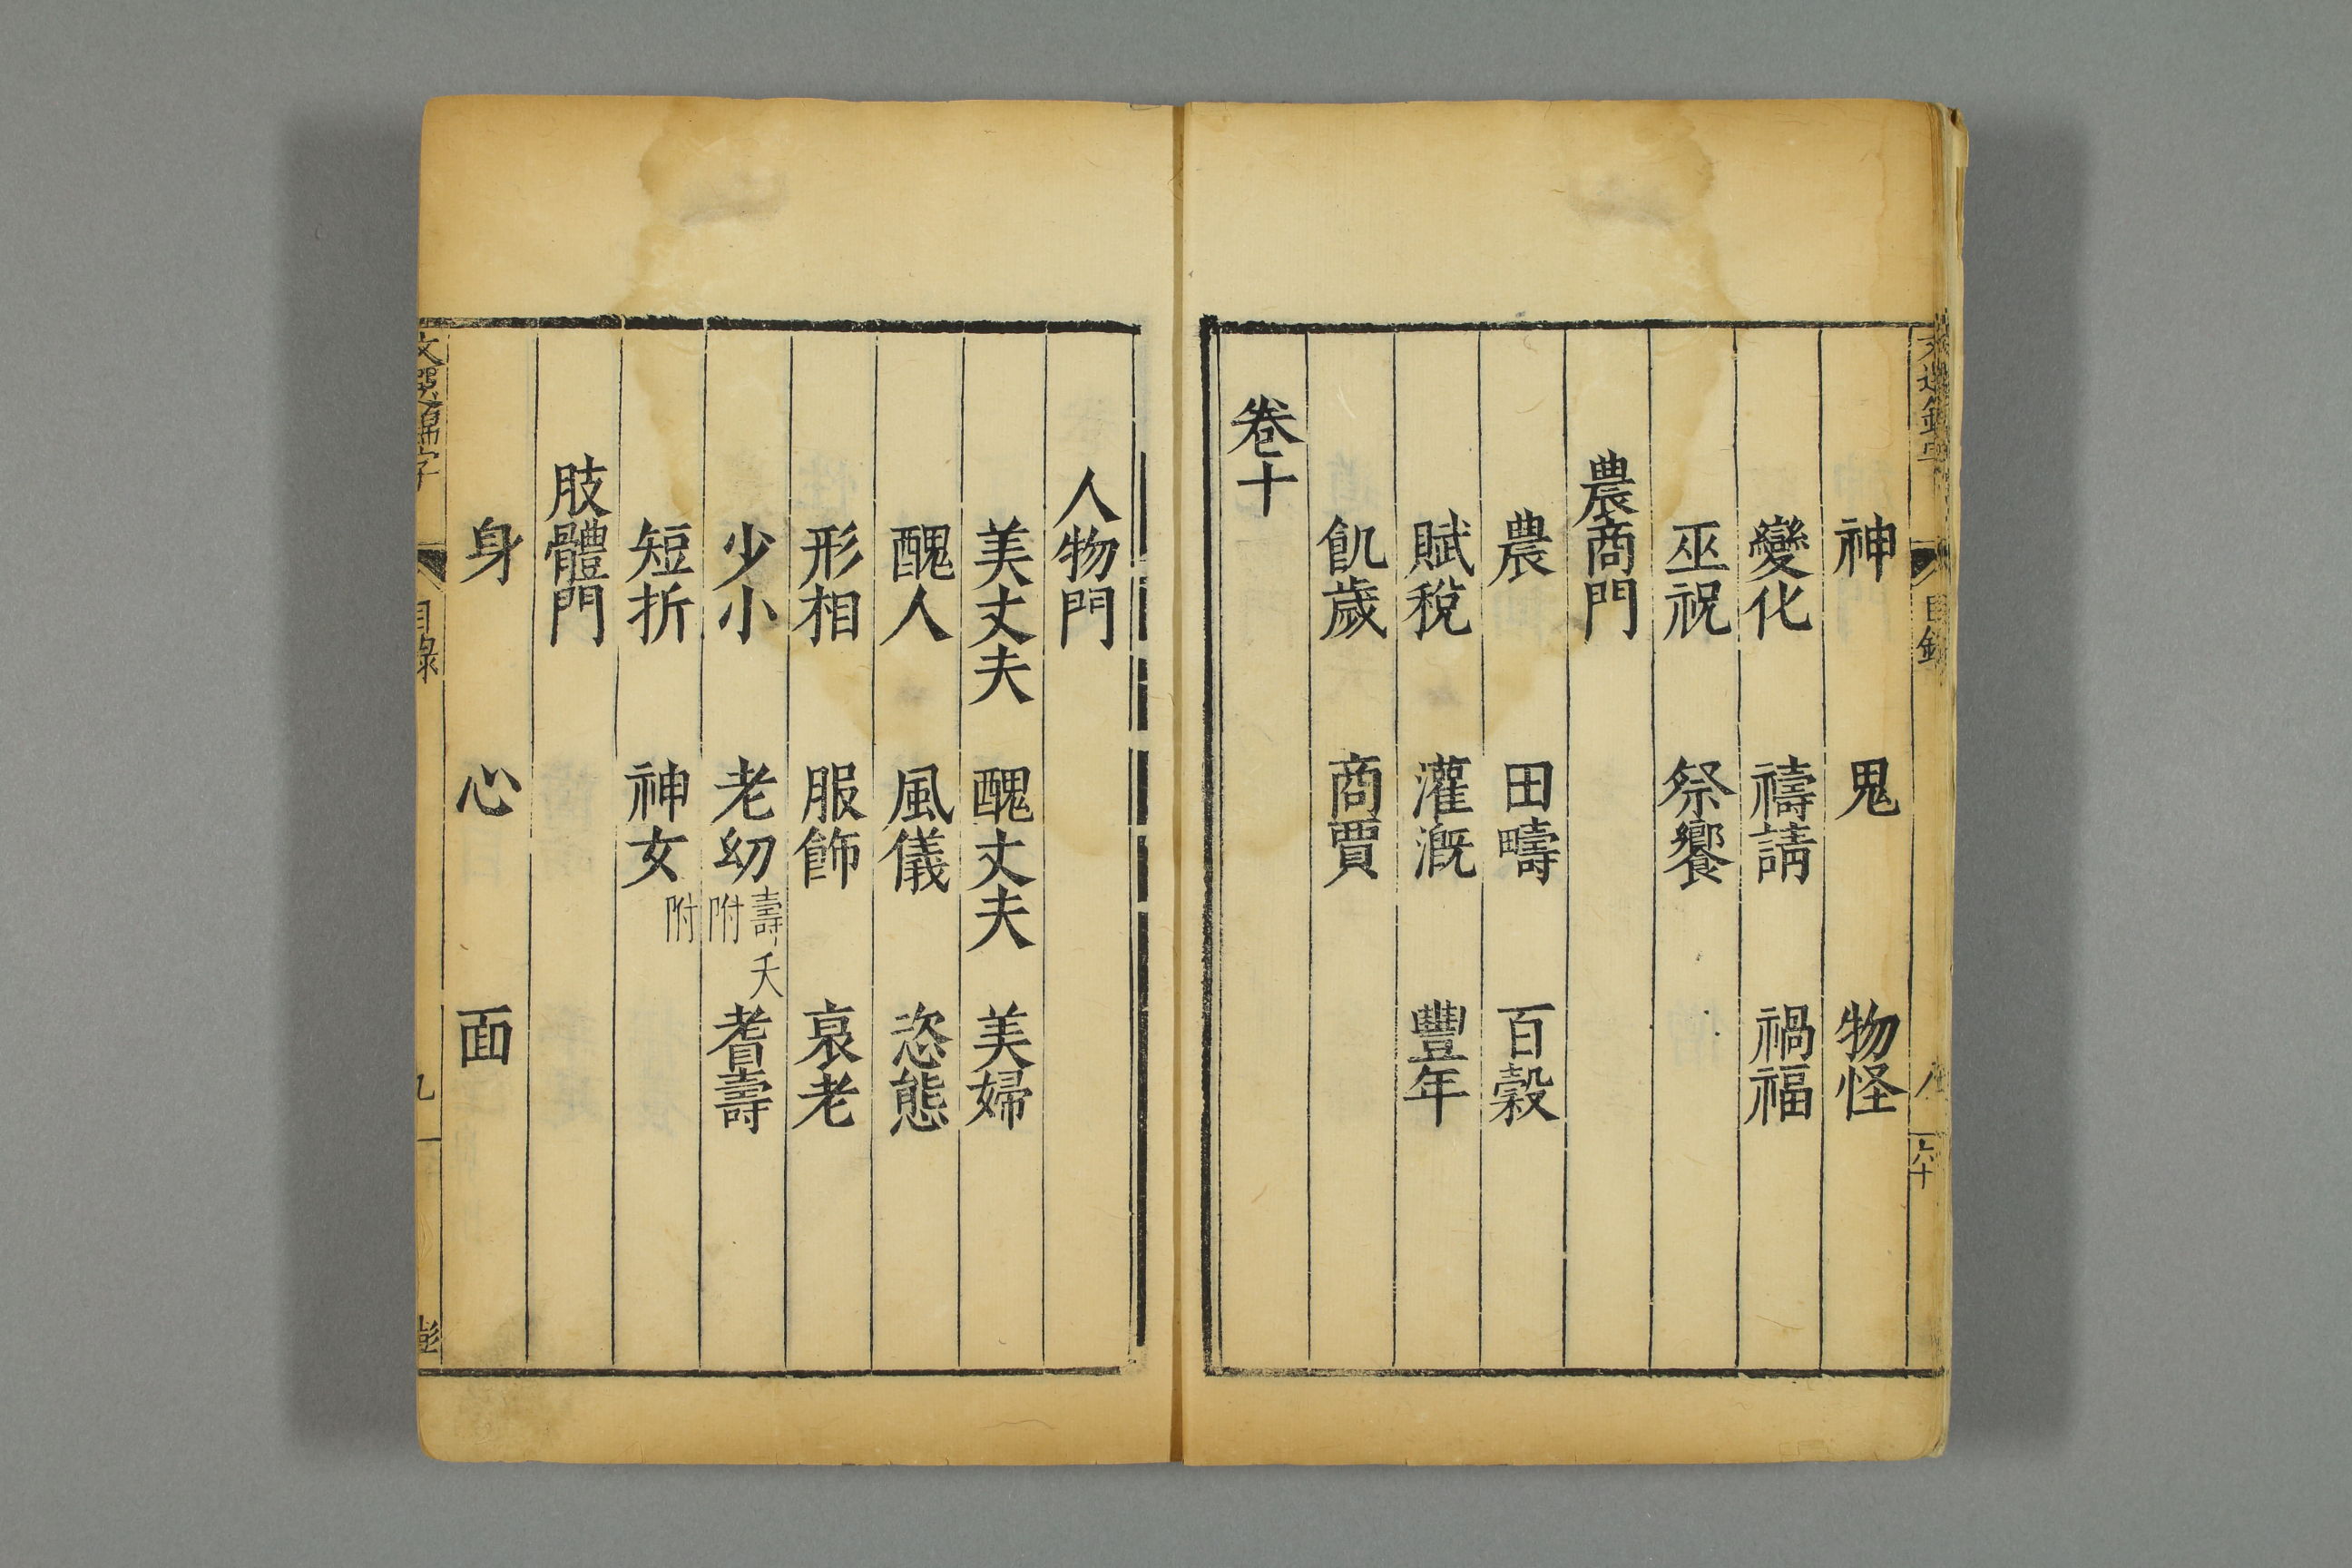 神　鬼　物怪
變化　禱請　禍福
巫祝　祭饗
農商門
農　田疇　百穀
賦稅　灌溉　豐年
飢歲　商賈
卷十
人物門
美丈夫　醜丈夫　美婦
醜人　風儀　恣態
形相　服飾　衰老
少小　老幼壽夭附　耆壽
短折　神女附
肢體門
身　心　面
目錄　九